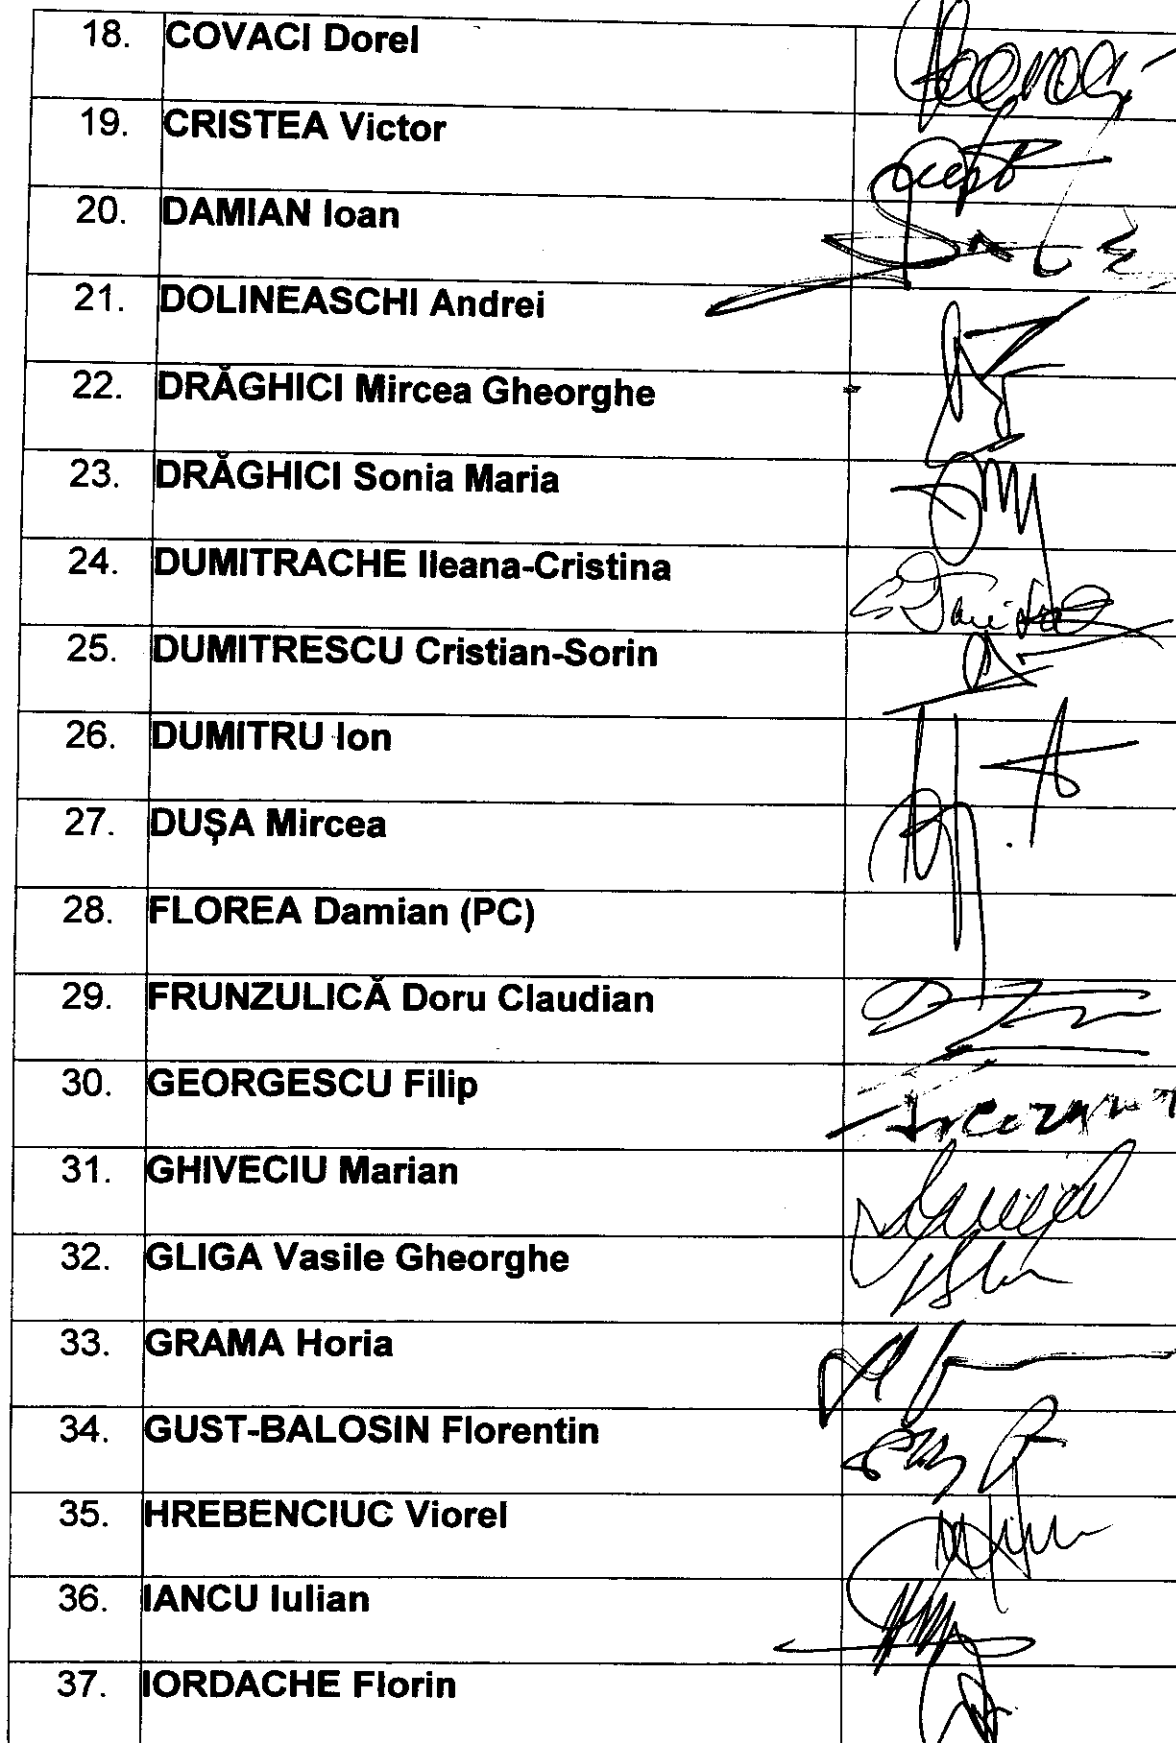 18. COVACI Dorel
19. CRISTEA Victor
20. DAMIAN Ioan
21. DOLINEASCHI Andrei
22. DRĂGHICI Mircea Gheorghe
23. DRĂGHICI Sonia Maria
24. DUMITRACHE Ileana-Cristina
25. DUMITRESCU Cristian-Sorin
26. DUMITRU Ion
27. DUȘA Mircea
28. FLOREA Damian (PC)
29. FRUNZULICĂ Doru Claudian
30. GEORGESCU Filip
31. GHIVECIU Marian
32. GLIGA Vasile Gheorghe
33. GRAMA Horia
34. GUST-BALOSIN Florentin
35. HREBENCIUC Viorel
36. IANCU Iulian
37. IORDACHE Florin